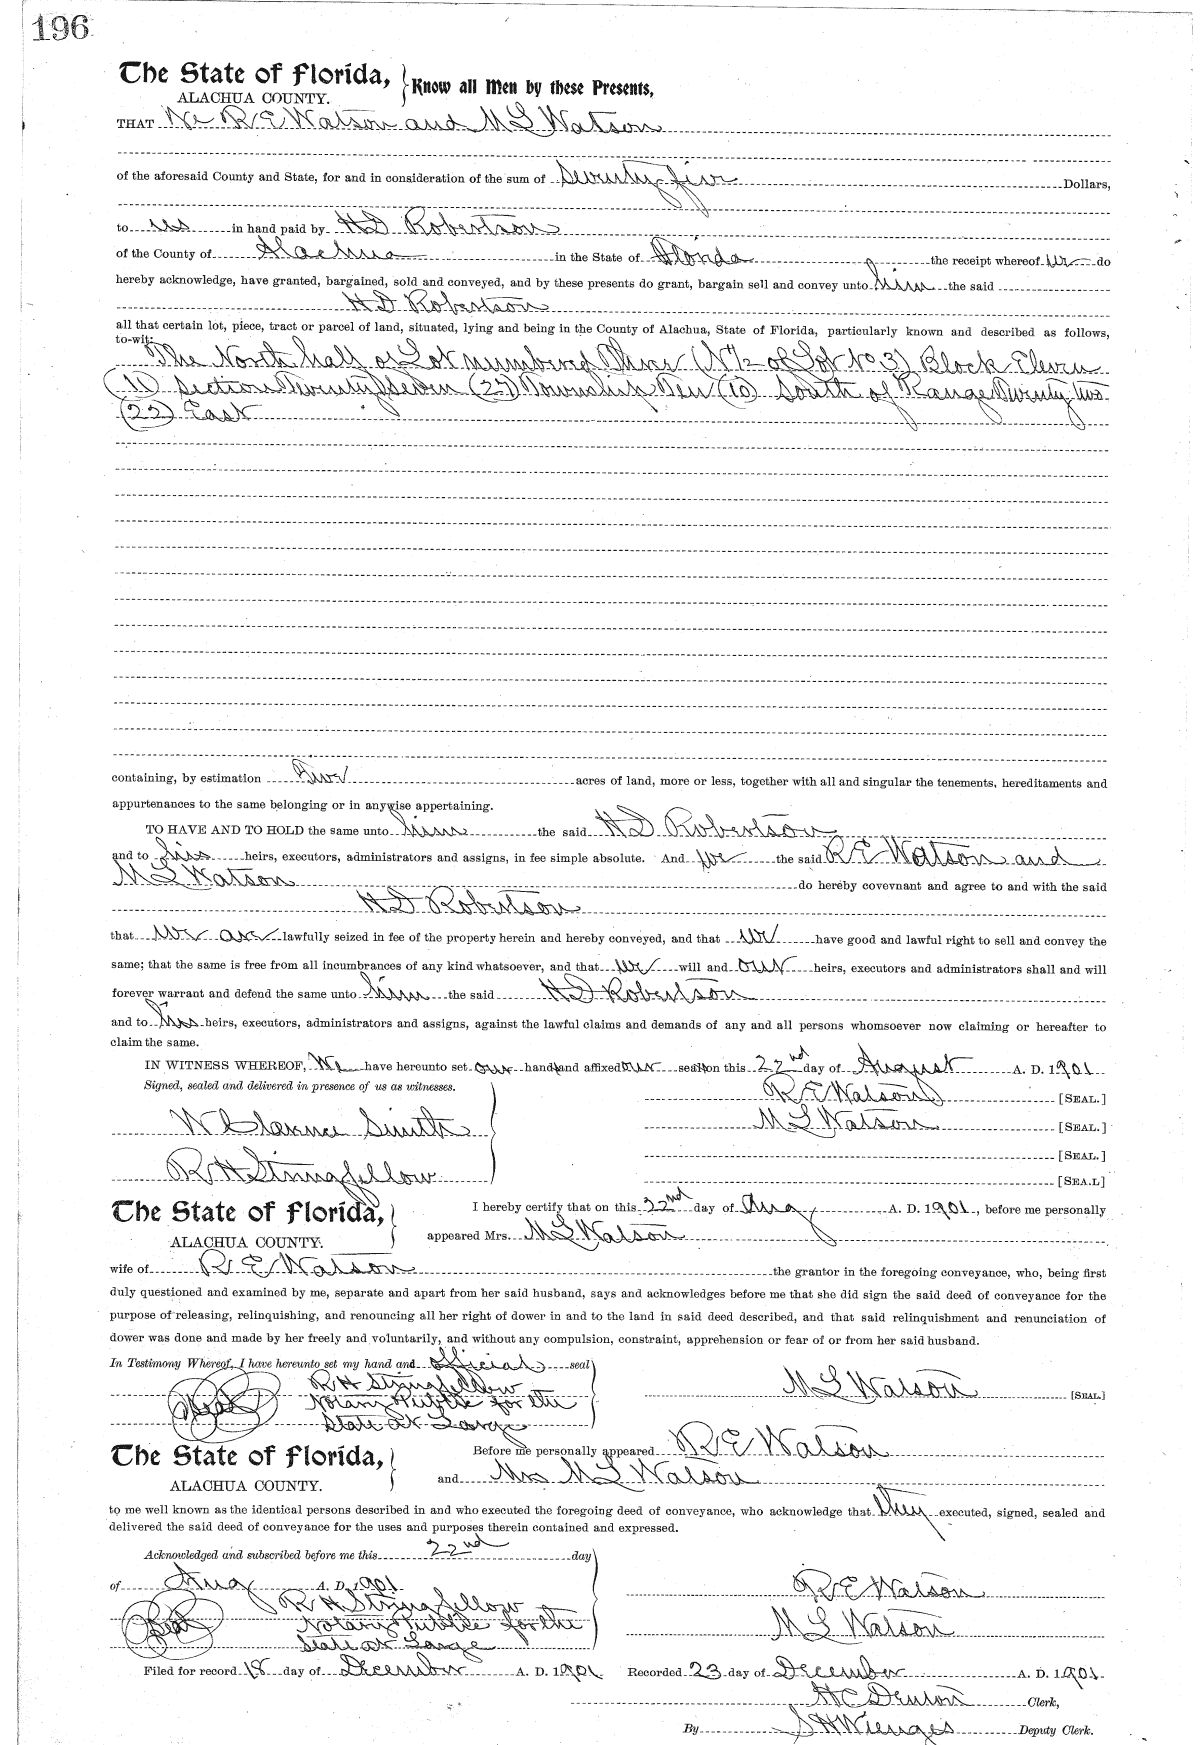 196
The State of Florida, } Know all Men by these Presents,
ALACHUA COUNTY.
THAT We R E Watson and M L Watson
of the aforesaid County and State, for and in consideration of the sum of Seventy five Dollars,
to us in hand paid by H D Robertson
of the County of Alachua in the State of Florida the receipt whereof we do
hereby acknowledge, have granted, bargained, sold and conveyed, and by these presents do grant, bargain sell and convey unto him the said
H D Robertson
all that certain lot, piece, tract or parcel of land, situated, lying and being in the County of Alachua, State of Florida, particularly known and described as follows,
to-wit:
The North half of Lot numbered Three (N ½ of Lot No 3) Block Eleven
(11) Section Twenty Seven (27) Township Ten (10) South of Range Twenty two
(22) East
containing, by estimation five acres of land, more or less, together with all and singular the tenements, hereditaments and
appurtenances to the same belonging or in anywise appertaining.
TO HAVE AND TO HOLD the same unto him the said H D Robertson
and to his heirs, executors, administrators and assigns, in fee simple absolute. And we the said R E Watson and
M L Watson do hereby covevnant and agree to and with the said
H D Robertson
that we are lawfully seized in fee of the property herein and hereby conveyed, and that we have good and lawful right to sell and convey the
same; that the same is free from all incumbrances of any kind whatsoever, and that we will and our heirs, executors and administrators shall and will
forever warrant and defend the same unto him the said H D Robertson
and to his heirs, executors, administrators and assigns, against the lawful claims and demands of any and all persons whomsoever now claiming or hereafter to
claim the same.
IN WITNESS WHEREOF, We have hereunto set our hand and affixed our seal on this 22nd day of August A. D. 1901
Signed, sealed and delivered in presence of us as witnesses.
R E Watson [SEAL.]
W Clarence Smith
M L Watson [SEAL.]
[SEAL.]
R H Stringfellow
[SEA.L]
The State of Florida,
ALACHUA COUNTY.
I hereby certify that on this 22nd day of Aug A. D. 1901, before me personally
appeared Mrs. M L Watson
wife of R E Watson the grantor in the foregoing conveyance, who, being first
duly questioned and examined by me, separate and apart from her said husband, says and acknowledges before me that she did sign the said deed of conveyance for the
purpose of releasing, relinquishing, and renouncing all her right of dower in and to the land in said deed described, and that said relinquishment and renunciation of
dower was done and made by her freely and voluntarily, and without any compulsion, constraint, apprehension or fear of or from her said husband.
In Testimony Whereof, I have hereunto set my hand and official seal
R H Stringfellow
M L Watson [SEAL.]
Seal Notary Public for the
State at Large
The State of Florida,
ALACHUA COUNTY.
Before me personally appeared R E Watson
and Mrs M L Watson
to me well known as the identical persons described in and who executed the foregoing deed of conveyance, who acknowledge that they executed, signed, sealed and
delivered the said deed of conveyance for the uses and purposes therein contained and expressed.
Acknowledged and subscribed before me this 22nd day
of Aug A. D. 1901
R E Watson
R H Stringfellow
Seal Notary Public for the
M L Watson
State at Large
Filed for record 18 day of December A. D. 1901 Recorded 23 day of December A. D. 1901
H C Denton Clerk,
By S H Wienges Deputy Clerk.